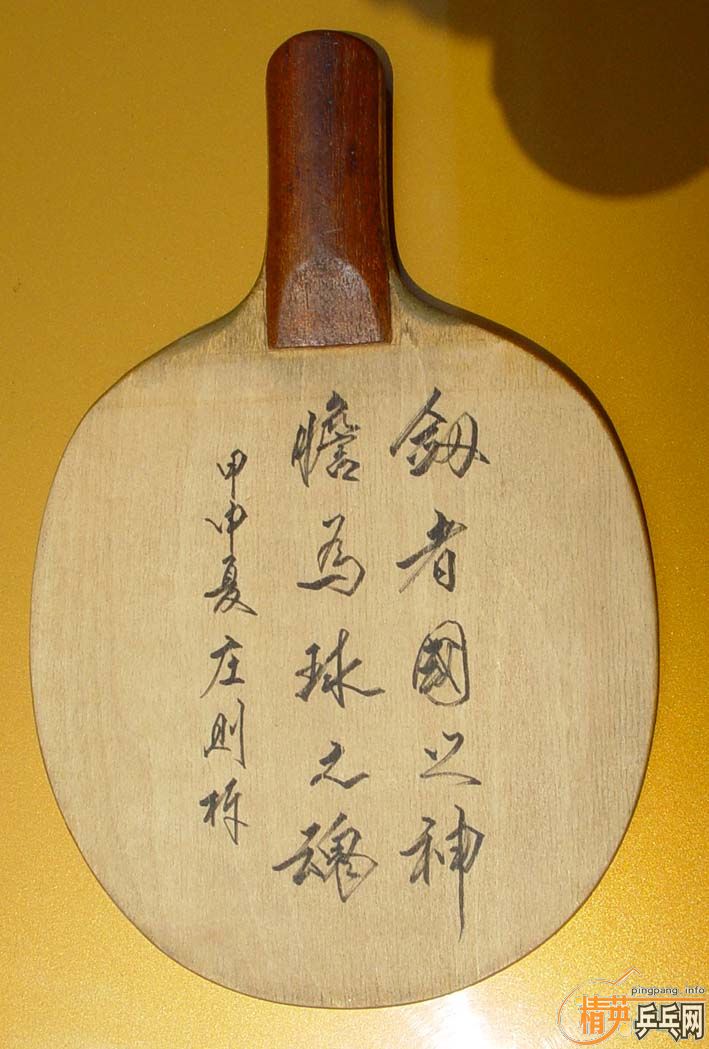 劔者國之神
膽為球之魂
甲申夏庄则栋
pingpang.info
精英乒乓网